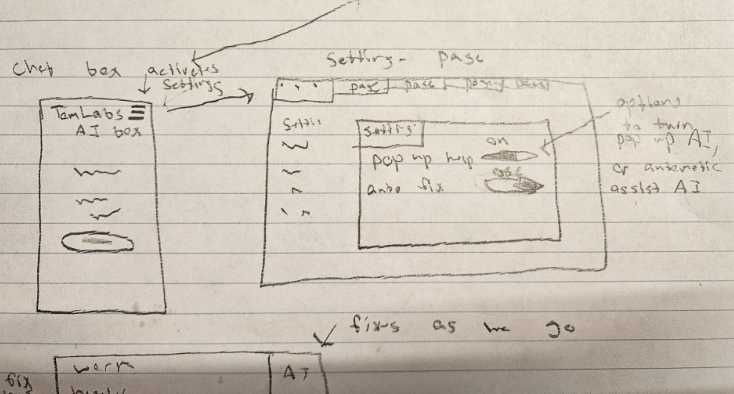 Chat box activates
settings
TemLabs
AI box
Setting page
page page page page
Settin
setting
on
pop up help
auto fix
options
to turn
pop up AI,
or automatic
assist AI
fixs as we go
work
AI
fix